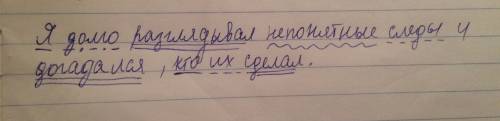 Я долго разглядывал непонятные следы и
догадался, кто их сделал.